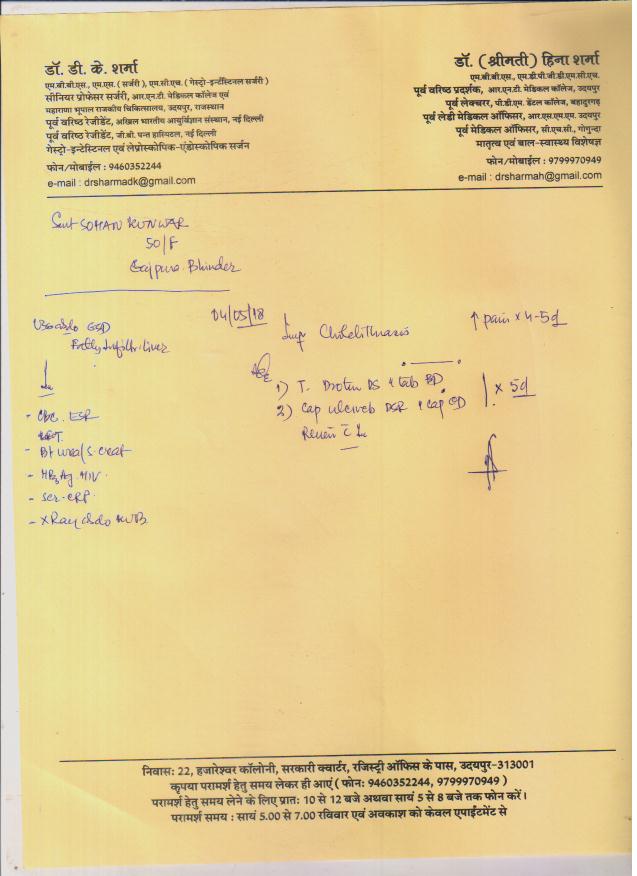 डॉ. डी. के. शर्मा
एम.बी.बी.एस., एम.एस. ( सर्जरी ), एम.सी.एच. ( गेस्ट्रो-इन्टेंस्टिनल सर्जरी )
सीनियर प्रोफेसर सर्जरी, आर.एन.टी. मेडिकल कॉलेज एवं
महाराणा भूपाल राजकीय चिकित्सालय, उदयपुर, राजस्थान
पूर्व वरिष्ठ रेजीडेंट, अखिल भारतीय आयुर्विज्ञान संस्थान, नई दिल्ली
पूर्व वरिष्ठ रेजीडेंट, जी.बी. पन्त हास्पिटल, नई दिल्ली
गेस्ट्रो-इन्टेस्टिनल एवं लेप्रोस्कोपिक-एंडोस्कोपिक सर्जन
फोन/मोबाईल : 9460352244
e-mail : drsharmadk@gmail.com
डॉ. (श्रीमती) हिना शर्मा
एम.बी.बी.एस., एम.डी.पी.जी.डी.एम.सी.एच.
पूर्व वरिष्ठ प्रदर्शक, आर.एन.टी. मेडिकल कॉलेज, उदयपुर
पूर्व लेक्चरर, पी.डी.एम. डेंटल कॉलेज, बहादुरगढ़
पूर्व लेडी मेडिकल ऑफिसर, आर.एस.एम.एम. उदयपुर
पूर्व मेडिकल ऑफिसर, सी.एच.सी., गोगुन्दा
मातृत्व एवं बाल-स्वास्थ्य विशेषज्ञ
फोन/मोबाईल : 9799970949
e-mail : drsharmah@gmail.com
Smt SOHAN KUNWAR
50/F
Bhinder
04/05/18
Imp Cholelithiasis
↑ pain x 4-5d
GBD
Fatty Infiltr. Liver
1) T. DS 1 tab BD
2) Cap DSR 1 cap OD
x 5d
Review
- CBC. ESR
LFT
- Bl urea/S. creat
- HBsAg. HIV.
- Ser. CRP.
- X Ray abdo KUB
निवास: 22, हजारेश्वर कॉलोनी, सरकारी क्वार्टर, रजिस्ट्री ऑफिस के पास, उदयपुर-313001
कृपया परामर्श हेतु समय लेकर ही आएं ( फोन: 9460352244, 9799970949 )
परामर्श हेतु समय लेने के लिए प्रात: 10 से 12 बजे अथवा सायं 5 से 8 बजे तक फोन करें।
परामर्श समय : सायं 5.00 से 7.00 रविवार एवं अवकाश को केवल एपाईंटमेंट से